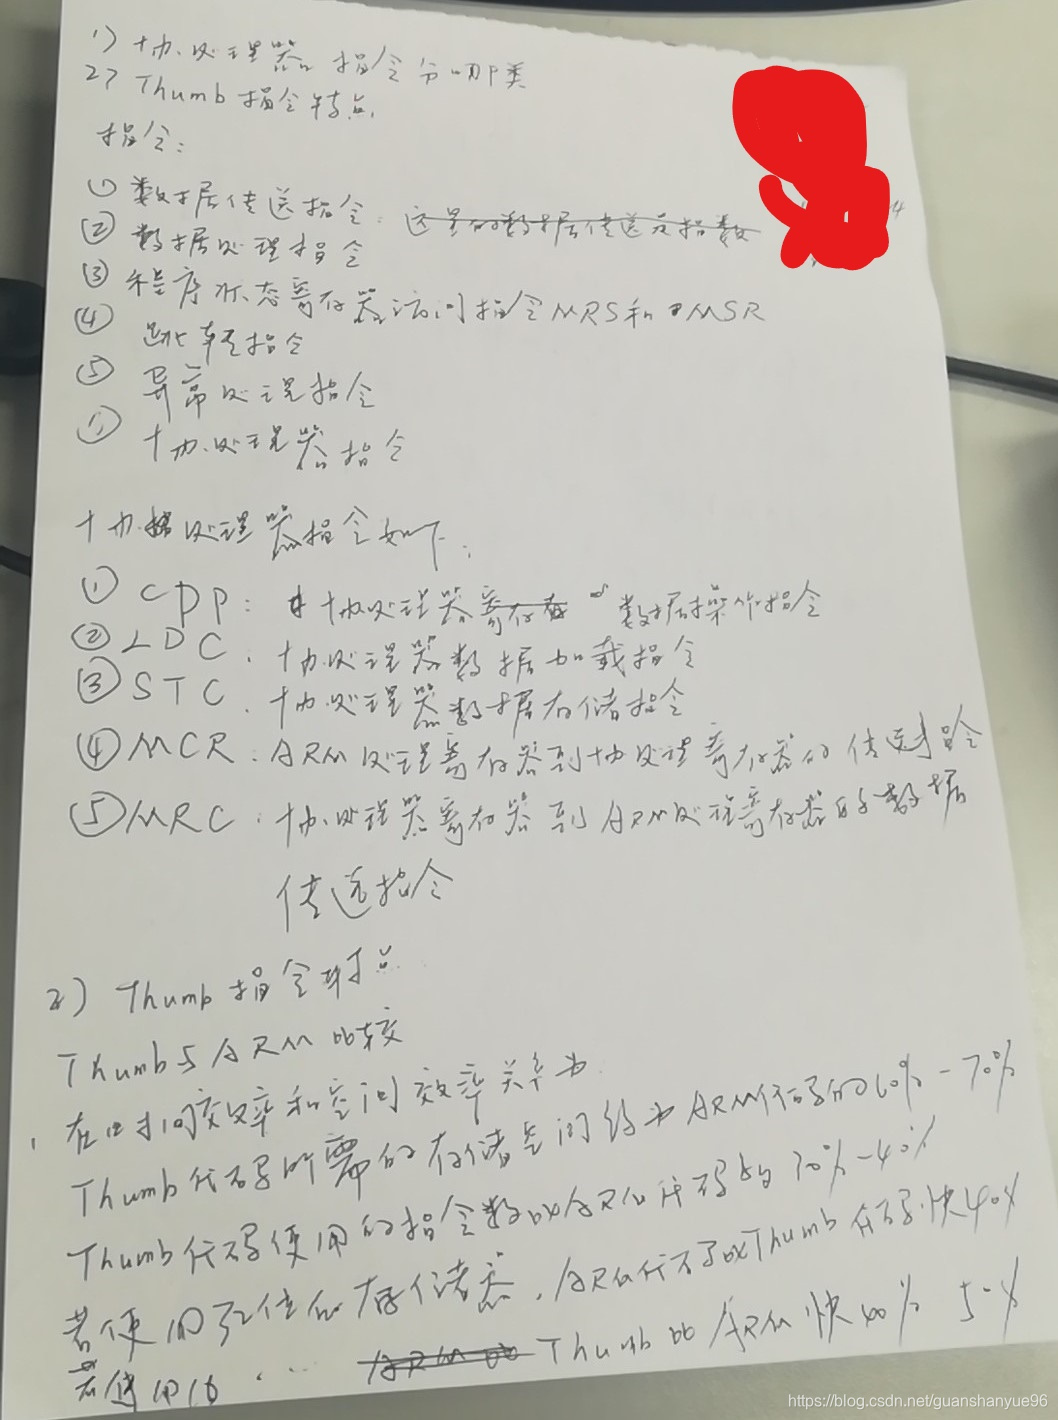 1) 协处理器指令分哪类
2) Thumb 指令特点
指令:
① 数据传送指令. 这里的数据传送是指数
② 数据处理指令
③ 程序状态寄存器访问指令MRS和MSR
④ 跳转指令
⑤ 异常处理指令
协处理器指令
协处理器指令如下:
① CDP: 协处理器寄存 数据操作指令
② LDC. 协处理器数据加载指令
③ STC. 协处理器数据存储指令
④ MCR: ARM处理寄存器到协处理寄存器的传送指令
⑤ MRC: 协处理器寄存器到ARM处理寄存器的数据
传送指令
2) Thumb 指令特点
Thumb与ARM比较
在时间效率和空间效率关系为
Thumb代码所需的存储空间约为ARM代码的60%-70%
Thumb代码使用的指令数比ARM代码多约30%-40%
若使用32位的存储器, ARM代码比Thumb代码快40%
若使用16 ... ARM比 Thumb比ARM快40% 50%
https://blog.csdn.net/guanshanyue96